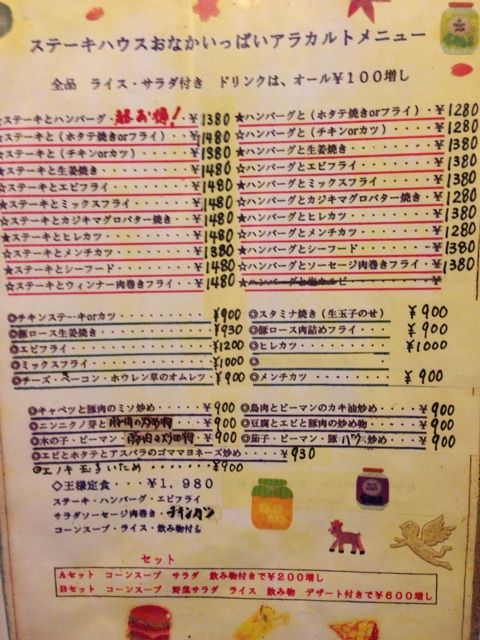 ステーキハウスおなかいっぱいアラカルトメニュー
全品 ライス・サラダ付き ドリンクは、オール￥100増し
☆ステーキとハンバーグ・超お得!・￥1380
★ステーキと(ホタテ焼きorフライ)・￥1480
☆ステーキと(チキンorカツ)・・・￥1380
★ステーキと生姜焼き・・・・・・￥1480
☆ステーキとエビフライ・・・・・￥1480
★ステーキとミックスフライ・・・￥1480
☆ステーキとカジキマグロバター焼き・￥1480
★ステーキとヒレカツ・・・・・・￥1480
☆ステーキとメンチカツ・・・・・￥1380
★ステーキとシーフード・・・・・￥1480
☆ステーキとウィンナー肉巻きフライ・￥1480
★ハンバーグと(ホタテ焼きorフライ)・￥1280
☆ハンバーグと(チキンorカツ)・・・￥1280
★ハンバーグと生姜焼き・・・・・・￥1380
☆ハンバーグとエビフライ・・・・・￥1380
★ハンバーグとミックスフライ・・・￥1380
☆ハンバーグとカジキマグロバター焼き・￥1380
★ハンバーグとヒレカツ・・・・・・￥1380
☆ハンバーグとメンチカツ・・・・・￥1280
★ハンバーグとシーフード・・・・・￥1380
☆ハンバーグとソーセージ肉巻きフライ・￥1380
★ハンバーグと塩カルビ
◎チキンステーキorカツ・・・・・￥900
◎豚ロース生姜焼き・・・・・・・￥930
◎エビフライ・・・・・・・・・・￥1200
◎ミックスフライ・・・・・・・・￥1000
◎チーズ・ベーコン・ホウレン草のオムレツ・￥900
◎スタミナ焼き(生玉子のせ) ￥900
◎豚ロース肉詰めフライ・・・￥900
◎ヒレカツ・・・・・・・・・￥1000
◎
◎メンチカツ・・・・・・・・￥900
◎キャベツと豚肉のミソ炒め・・・・￥900
◎ニンニクノ芽と豚肉の炒め物・・・￥900
◎木の子・ピーマン・豚肉の炒め物・・￥900
◎エビとホタテとアスパラのゴママヨネーズ炒め・・￥930
◎エノキ玉子いため・・・・￥900
◎鳥肉とピーマンのカキ油炒め・・・￥900
◎豆腐とエビと豚肉の炒め物・・・・￥900
◎茄子・ピーマン・豚バラ炒め・・・￥900
◇王様定食・・・￥1,980
ステーキ・ハンバーグ・エビフライ
サラダソーセージ肉巻き・チキンカツ
コーンスープ・ライス・飲み物付き
セット
Aセット コーンスープ サラダ 飲み物付きで￥200増し
Bセット コーンスープ 野菜サラダ ライス 飲み物 デザート付きで￥600増し